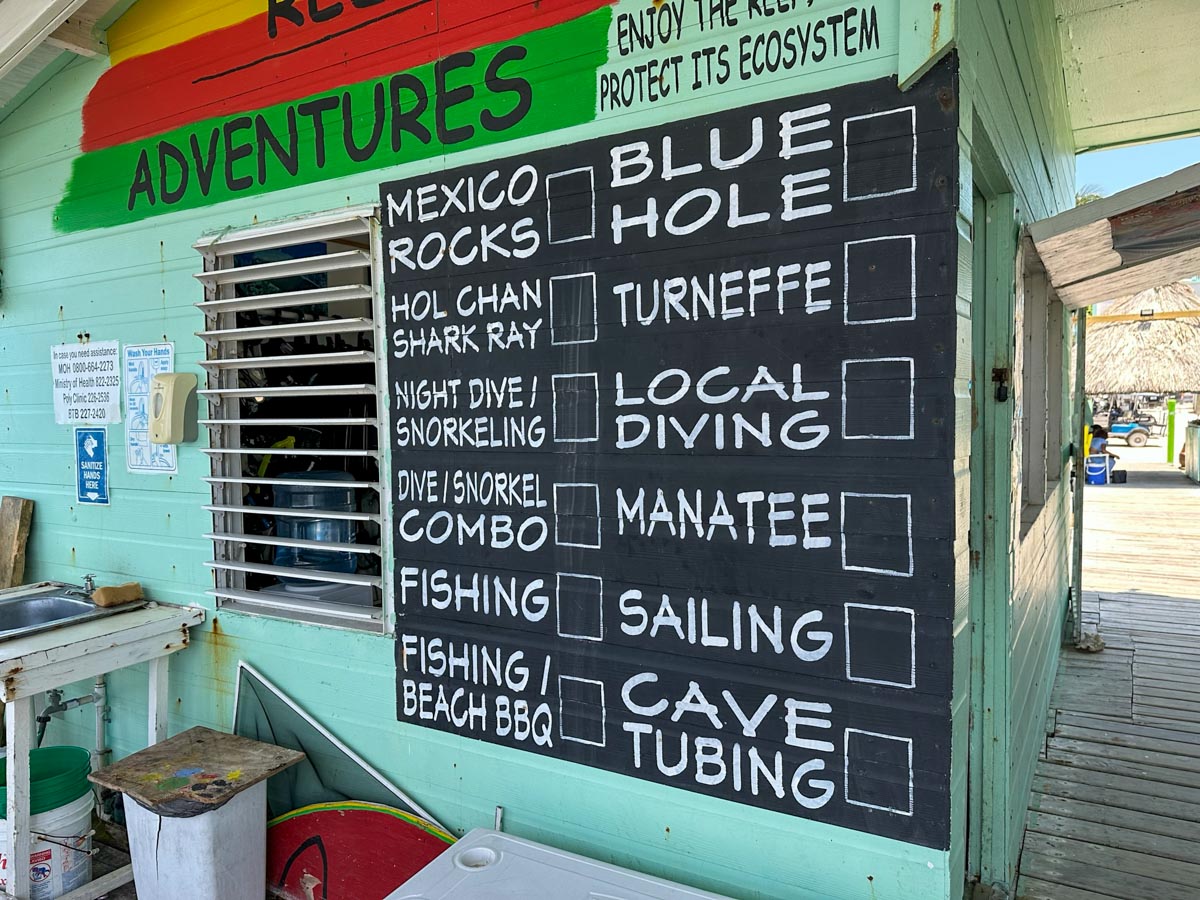 ADVENTURES
ENJOY THE REEF,
PROTECT ITS ECOSYSTEM
MEXICO
ROCKS
HOL CHAN
SHARK RAY
NIGHT DIVE /
SNORKELING
DIVE / SNORKEL
COMBO
FISHING
FISHING /
BEACH BBQ
BLUE
HOLE
TURNEFFE
LOCAL
DIVING
MANATEE
SAILING
CAVE
TUBING
In case you need assistance:
MOH 0800-664-2273
Ministry of Health 822-2325
Poly Clinic 226-2536
BTB 227-2420
Wash Your Hands
SANITIZE
HANDS
HERE